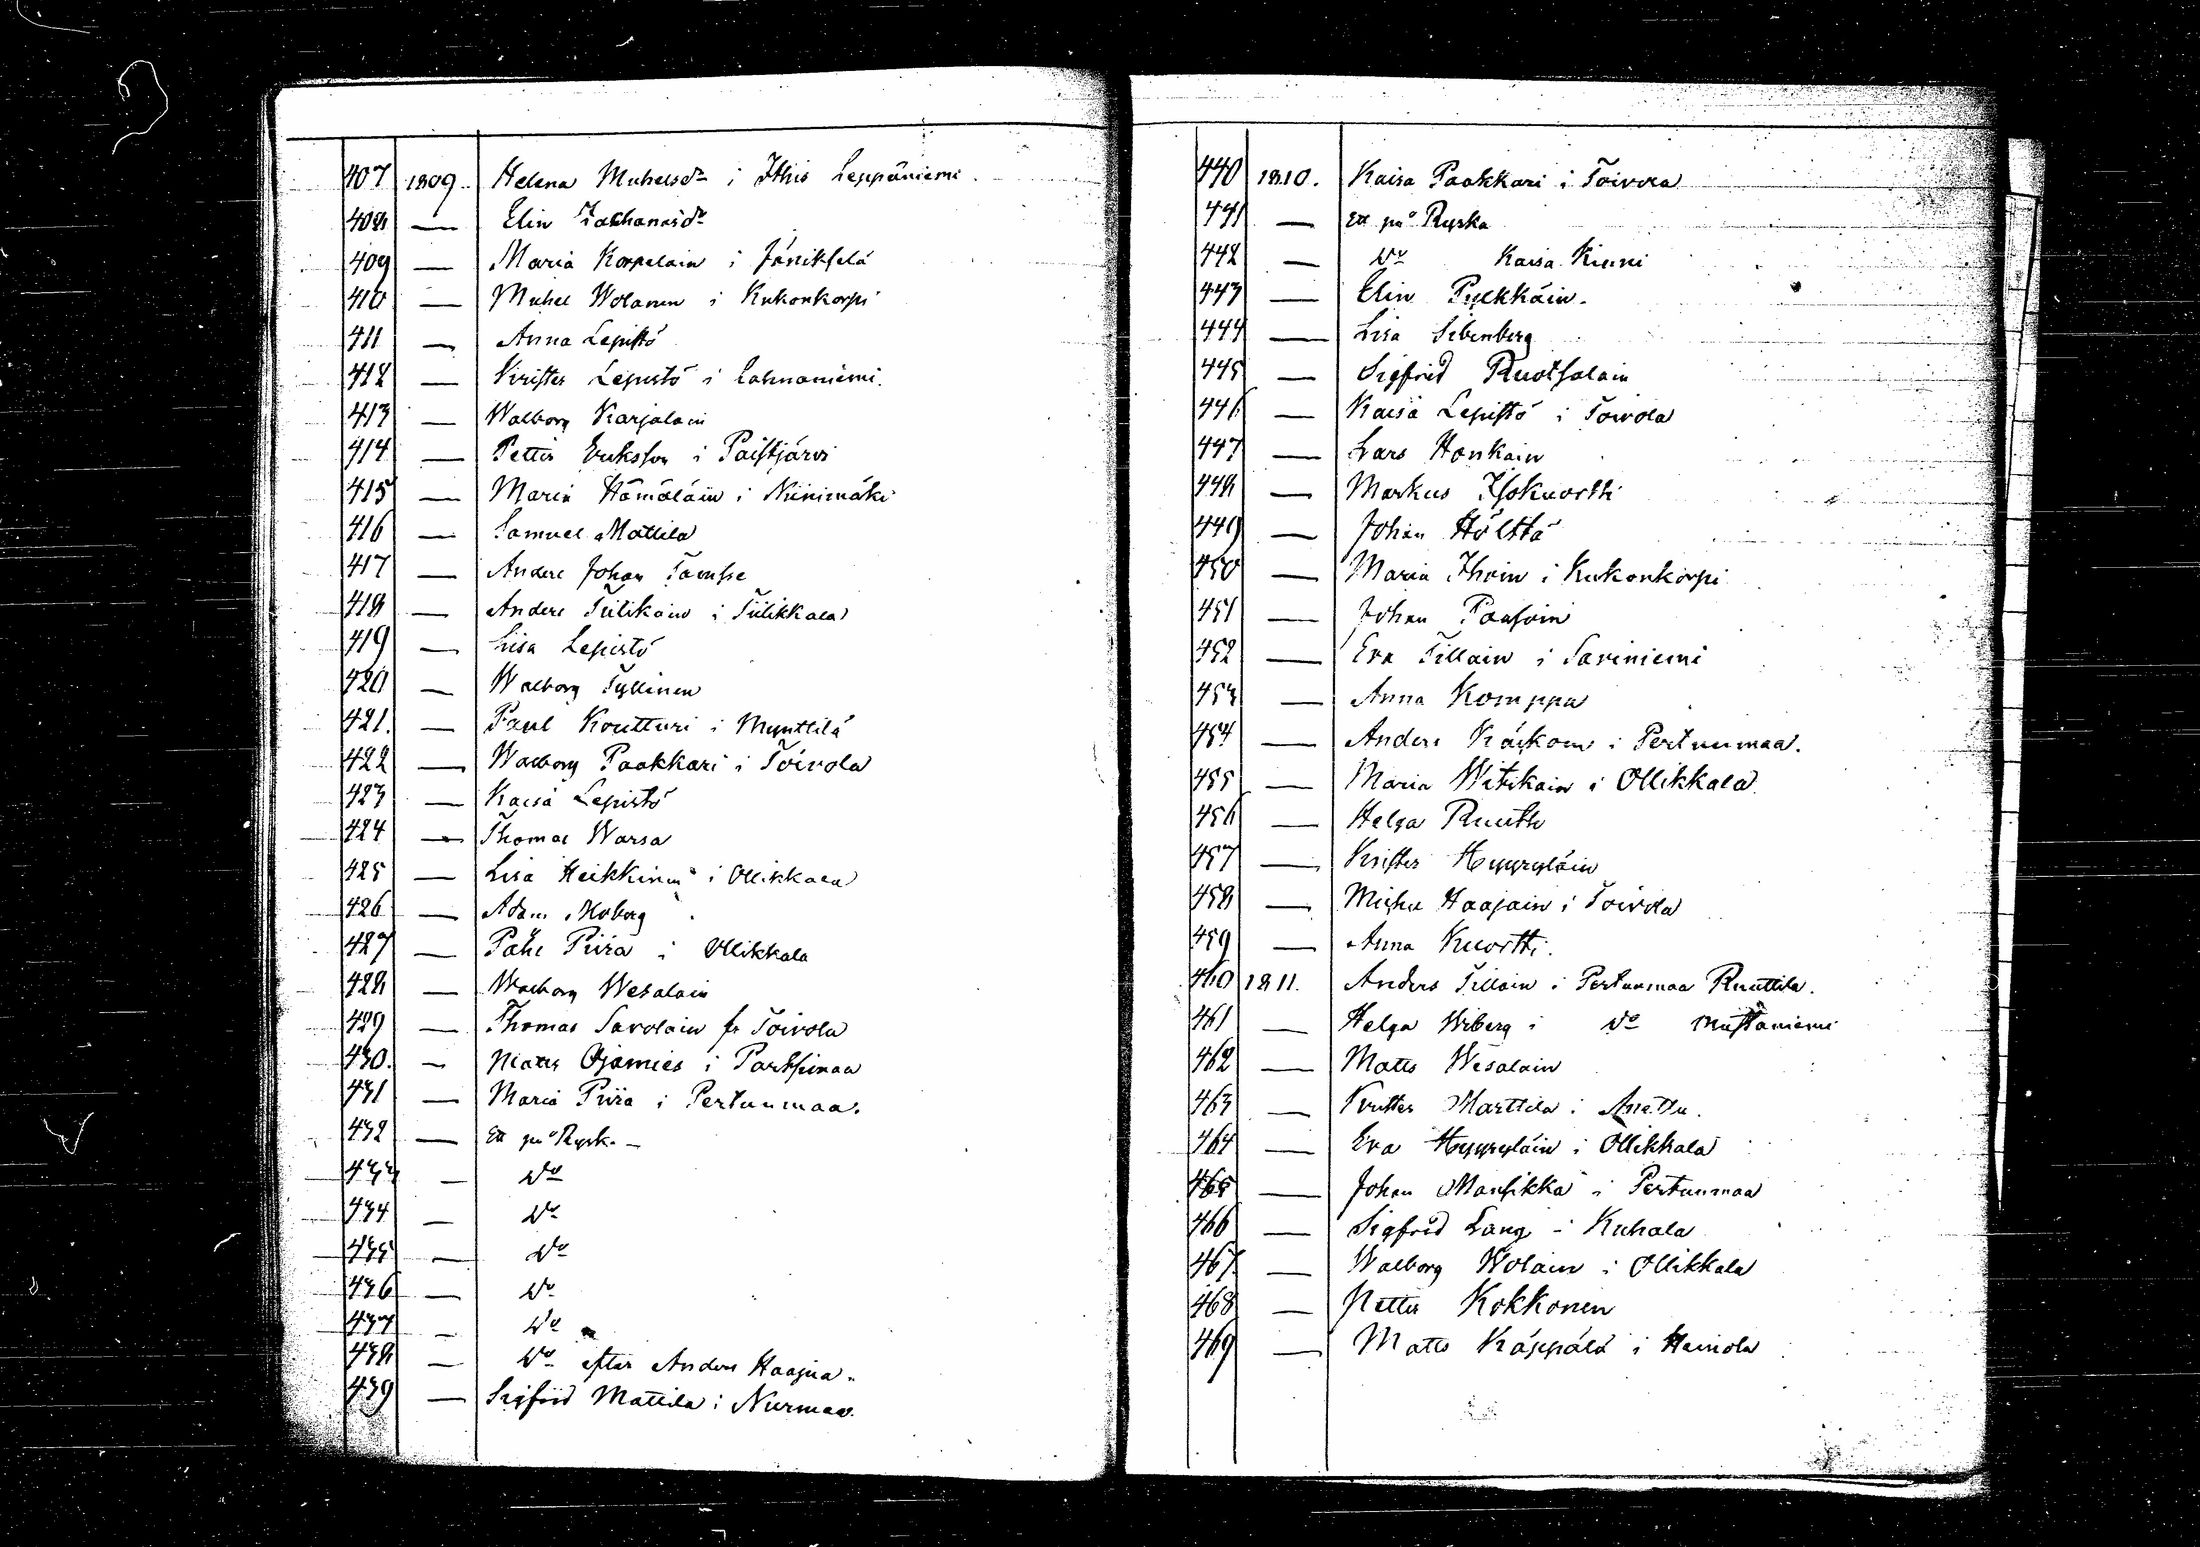 407 1809. Helena Michelsdr i Ithis Leppäniemi
408 — Elin Zakhariasdr
409 — Maria Korpelain i Jänikselä
410 — Michel Wolanen i Kukonkorpi
411 — Anna Lepistö
412 — Krister Lepistö i Lahnaniemi.
413 — Walborg Karjalain
414 — Petter Eriksson i Paistjärvi
415 — Maria Hämäläin i Niinimäki
416 — Samuel Mattila
417 — Anders Johan
418 — Anders Tiilikain i Tiilikkala
419 — Lisa Lepistö
420 — Walborg Tyllinen
421. — Paul Koutturi i Mynttilä
422 — Walborg Paakkari i Toivola
423 — Kaisa Lepistö
424 — Thomas Warsa
425 — Lisa Heikkinen i Ollikkala
426 — Adam Moberg
427 — Påhl Piira i Ollikkala
428 — Walborg Wesalain
429 — Thomas Savolain fr Toivola
430. — Matts Ojamies i Partsimaa
431 — Maria Piira i Pertunmaa.
432 — Ett pr Rysk. —
433 — Do
434 — Do
435 — Do
436 — Do
437 — Do
438 — Do efter Anders Haajia
439 — Sigfrid Mattila i Nurmaa.
440 1810. Kaisa Paakkari i Toivola
441 — Ett pr Ryska
442 — Do Kaisa Kinni
443 — Elin Pylkkäin.
444 — Lisa Sibenberg
445 — Sigfrid Ruotsalain
446 — Kaisa Lepistö i Toivola
447 — Lars Honkain
448 — Markus Isokuortti
449 — Johan Hölttä
450 — Maria Ihoin i Kukonkorpi
451 — Johan Paasoin
452 — Eva Tillain i Saviniemi
453 — Anna Komppa
454 — Anders i Pertunmaa.
455 — Maria Witikain i Ollikkala
456 — Helga Ruuth
457 — Krister Hyyryläin
458 — Michel Haajain i Toivola
459 — Anna Kuortti.
460 1811. Anders Tillain i Pertunmaa Ruuttila.
461 — Helga Wiberg i Do Mustaniemi
462 — Matts Wesalain
463 — Krister Marttila i
464 — Eva Hyyryläin i Ollikkala
465 — Johan Mansikka i Pertunmaa
466 — Sigfrid Lang i Kuhala
467. — Walborg Wolain i Ollikkala
468 — Petter Kokkonen
469 — Matts Käppälä i Heinola